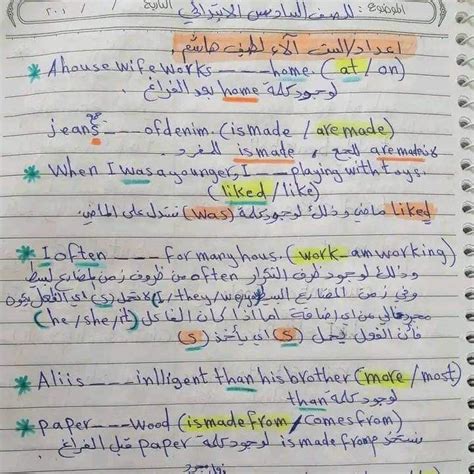 الموضوع: التاريخ / / ٢٠٠
للصف السادس الابتدائي
اعداد/الست آلاء لطيف هاشم
* A house wife works ____ home. (at / on)
لوجود كلمة home بعد الفراغ
jeans ___ of denim. (is made / are made)
جمع
are made للجمع , is made للمفرد
* When I was a younger, I ___ playing with toys.
(liked / like)
liked ماضي وذلك لوجود كلمة (was) تدل على الماضي
* I often ___ for many hous. (work - am working)
وذلك لوجود ظرف التكرار often من ظروف زمن المضارع البسيط
وفي زمن المضارع البسيط (I/they/we/you) اي الفعل يكون
مجرد من اي إضافة اما اذا كان الفاعل (he/she/it)
فأن الفعل (s) اي يأخذ (s)
* Ali is ___ inlligent than his brother (more / most)
لوجود كلمة than
* paper ___ wood (is made from / comes from)
is made from لوجود كلمة paper قبل الفراغ